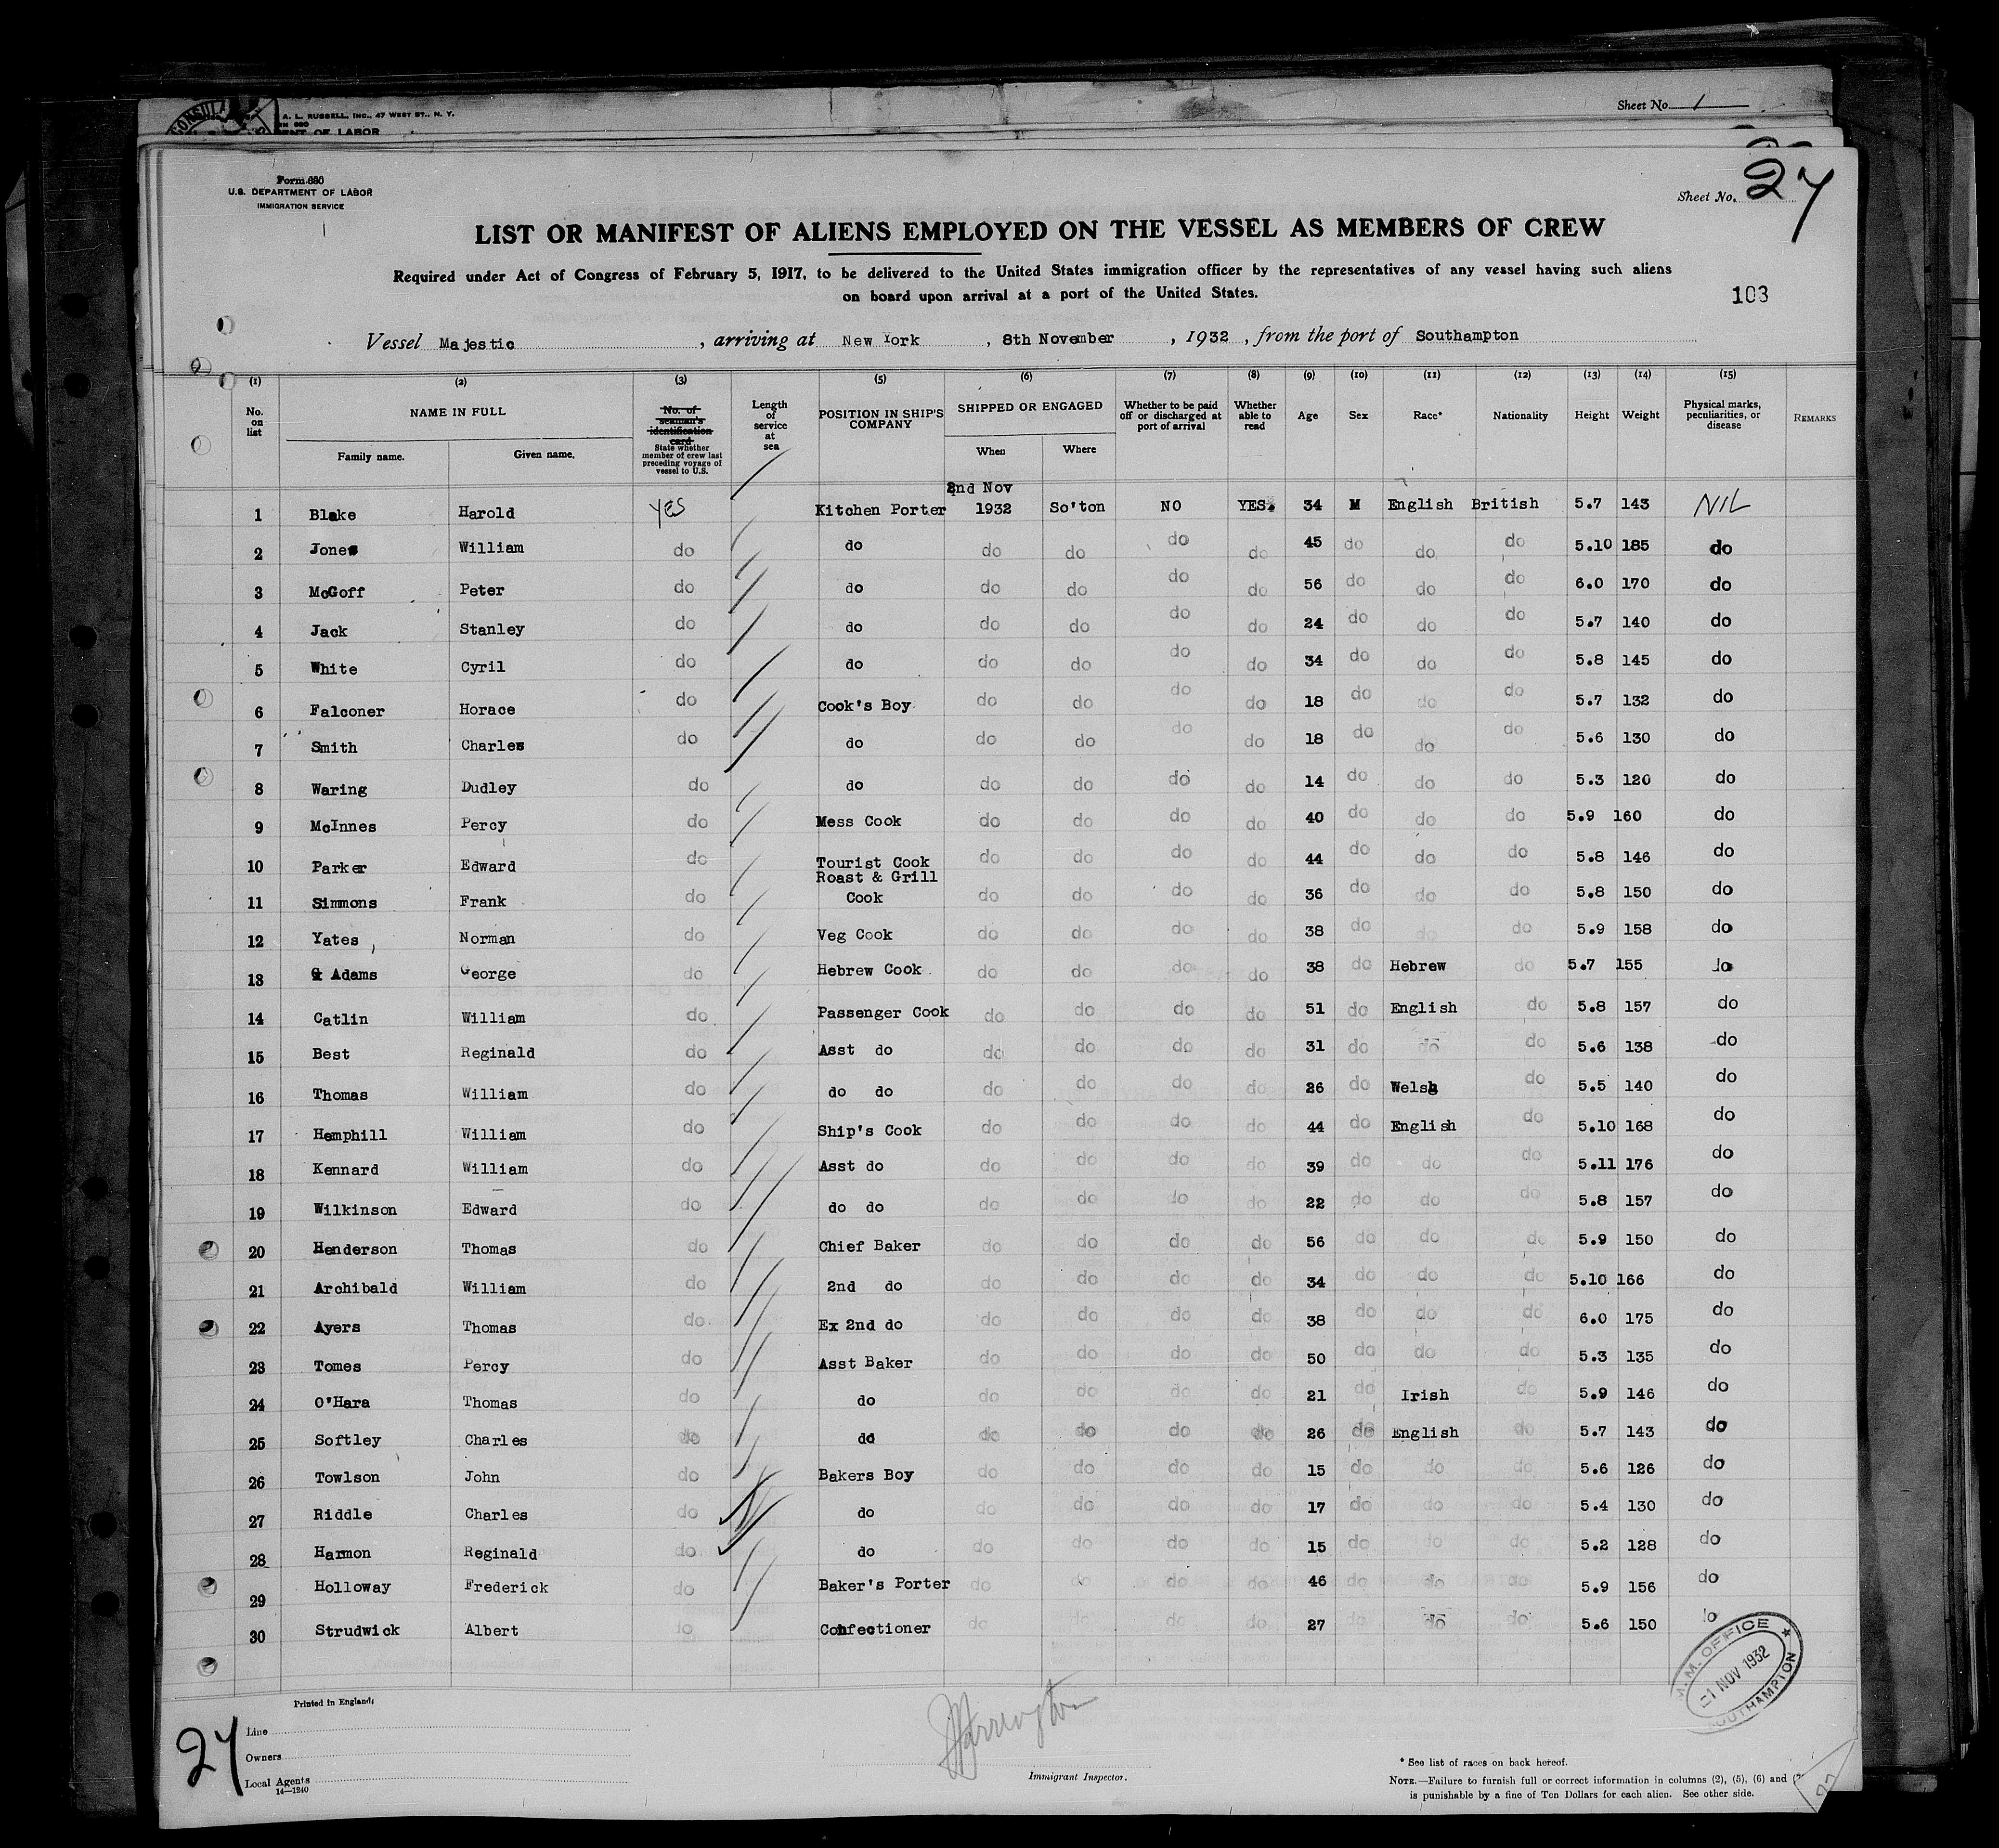 Sheet No. 1
CONSULA
A. L. RUSSELL, INC., 47 WEST ST., N. Y.
ENT OF LABOR
Form 680
U.S. DEPARTMENT OF LABOR
IMMIGRATION SERVICE
Sheet No. 27
LIST OR MANIFEST OF ALIENS EMPLOYED ON THE VESSEL AS MEMBERS OF CREW
Required under Act of Congress of February 5, 1917, to be delivered to the United States immigration officer by the representatives of any vessel having such aliens
on board upon arrival at a port of the United States.
103
Vessel Majestic, arriving at New York, 8th November, 1932, from the port of Southampton
(1) (2) (3) (5) (6) (7) (8) (9) (10) (11) (12) (13) (14) (15)
No. on list NAME IN FULL Family name. Given name. No. of seaman's identification card State whether member of crew last preceding voyage of vessel to U.S. Length of service at sea POSITION IN SHIP'S COMPANY SHIPPED OR ENGAGED When Where Whether to be paid off or discharged at port of arrival Whether able to read Age Sex Race* Nationality Height Weight Physical marks, peculiarities, or disease REMARKS
2nd Nov
1 Blake Harold YES Kitchen Porter 1932 So'ton NO YES. 34 M English British 5.7 143 NIL
2 Jones William do do do do do do 45 do do do 5.10 185 do
3 McGoff Peter do do do do do do 56 do do do 6.0 170 do
4 Jack Stanley do do do do do do 24 do do do 5.7 140 do
5 White Cyril do do do do do do 34 do do do 5.8 145 do
6 Falconer Horace do Cook's Boy do do do do 18 do do do 5.7 132 do
7 Smith Charles do do do do do do 18 do do do 5.6 130 do
8 Waring Dudley do do do do do do 14 do do do 5.3 120 do
9 McInnes Percy do Mess Cook do do do do 40 do do do 5.9 160 do
10 Parker Edward do Tourist Cook do do do do 44 do do do 5.8 146 do
Roast & Grill
11 Simmons Frank do Cook do do do do 36 do do do 5.8 150 do
12 Yates Norman do Veg Cook do do do do 38 do do do 5.9 158 do
13 Adams George do Hebrew Cook do do do do 38 do Hebrew do 5.7 155 do
14 Catlin William do Passenger Cook do do do do 51 do English do 5.8 157 do
15 Best Reginald do Asst do do do do do 31 do do do 5.6 138 do
16 Thomas William do do do do do do do 26 do Welsh do 5.5 140 do
17 Hemphill William do Ship's Cook do do do do 44 do English do 5.10 168 do
18 Kennard William do Asst do do do do do 39 do do do 5.11 176 do
19 Wilkinson Edward do do do do do do do 22 do do do 5.8 157 do
20 Henderson Thomas do Chief Baker do do do do 56 do do do 5.9 150 do
21 Archibald William do 2nd do do do do do 34 do do do 5.10 166 do
22 Ayers Thomas do Ex 2nd do do do do do 38 do do do 6.0 175 do
23 Tomes Percy do Asst Baker do do do do 50 do do do 5.3 135 do
24 O'Hara Thomas do do do do do do 21 do Irish do 5.9 146 do
25 Softley Charles do do do do do do 26 do English do 5.7 143 do
26 Towlson John do Bakers Boy do do do do 15 do do do 5.6 126 do
27 Riddle Charles do do do do do do 17 do do do 5.4 130 do
28 Harmon Reginald do do do do do do 15 do do do 5.2 128 do
29 Holloway Frederick do Baker's Porter do do do do 46 do do do 5.9 156 do
30 Strudwick Albert do Confectioner do do do do 27 do do do 5.6 150 do
M.M. OFFICE
1 NOV 1932
SOUTHAMPTON
Printed in England.
27
Line
Owners
Local Agents
14—1240
Immigrant Inspector.
* See list of races on back hereof.
NOTE.—Failure to furnish full or correct information in columns (2), (5), (6) and
is punishable by a fine of Ten Dollars for each alien. See other side.